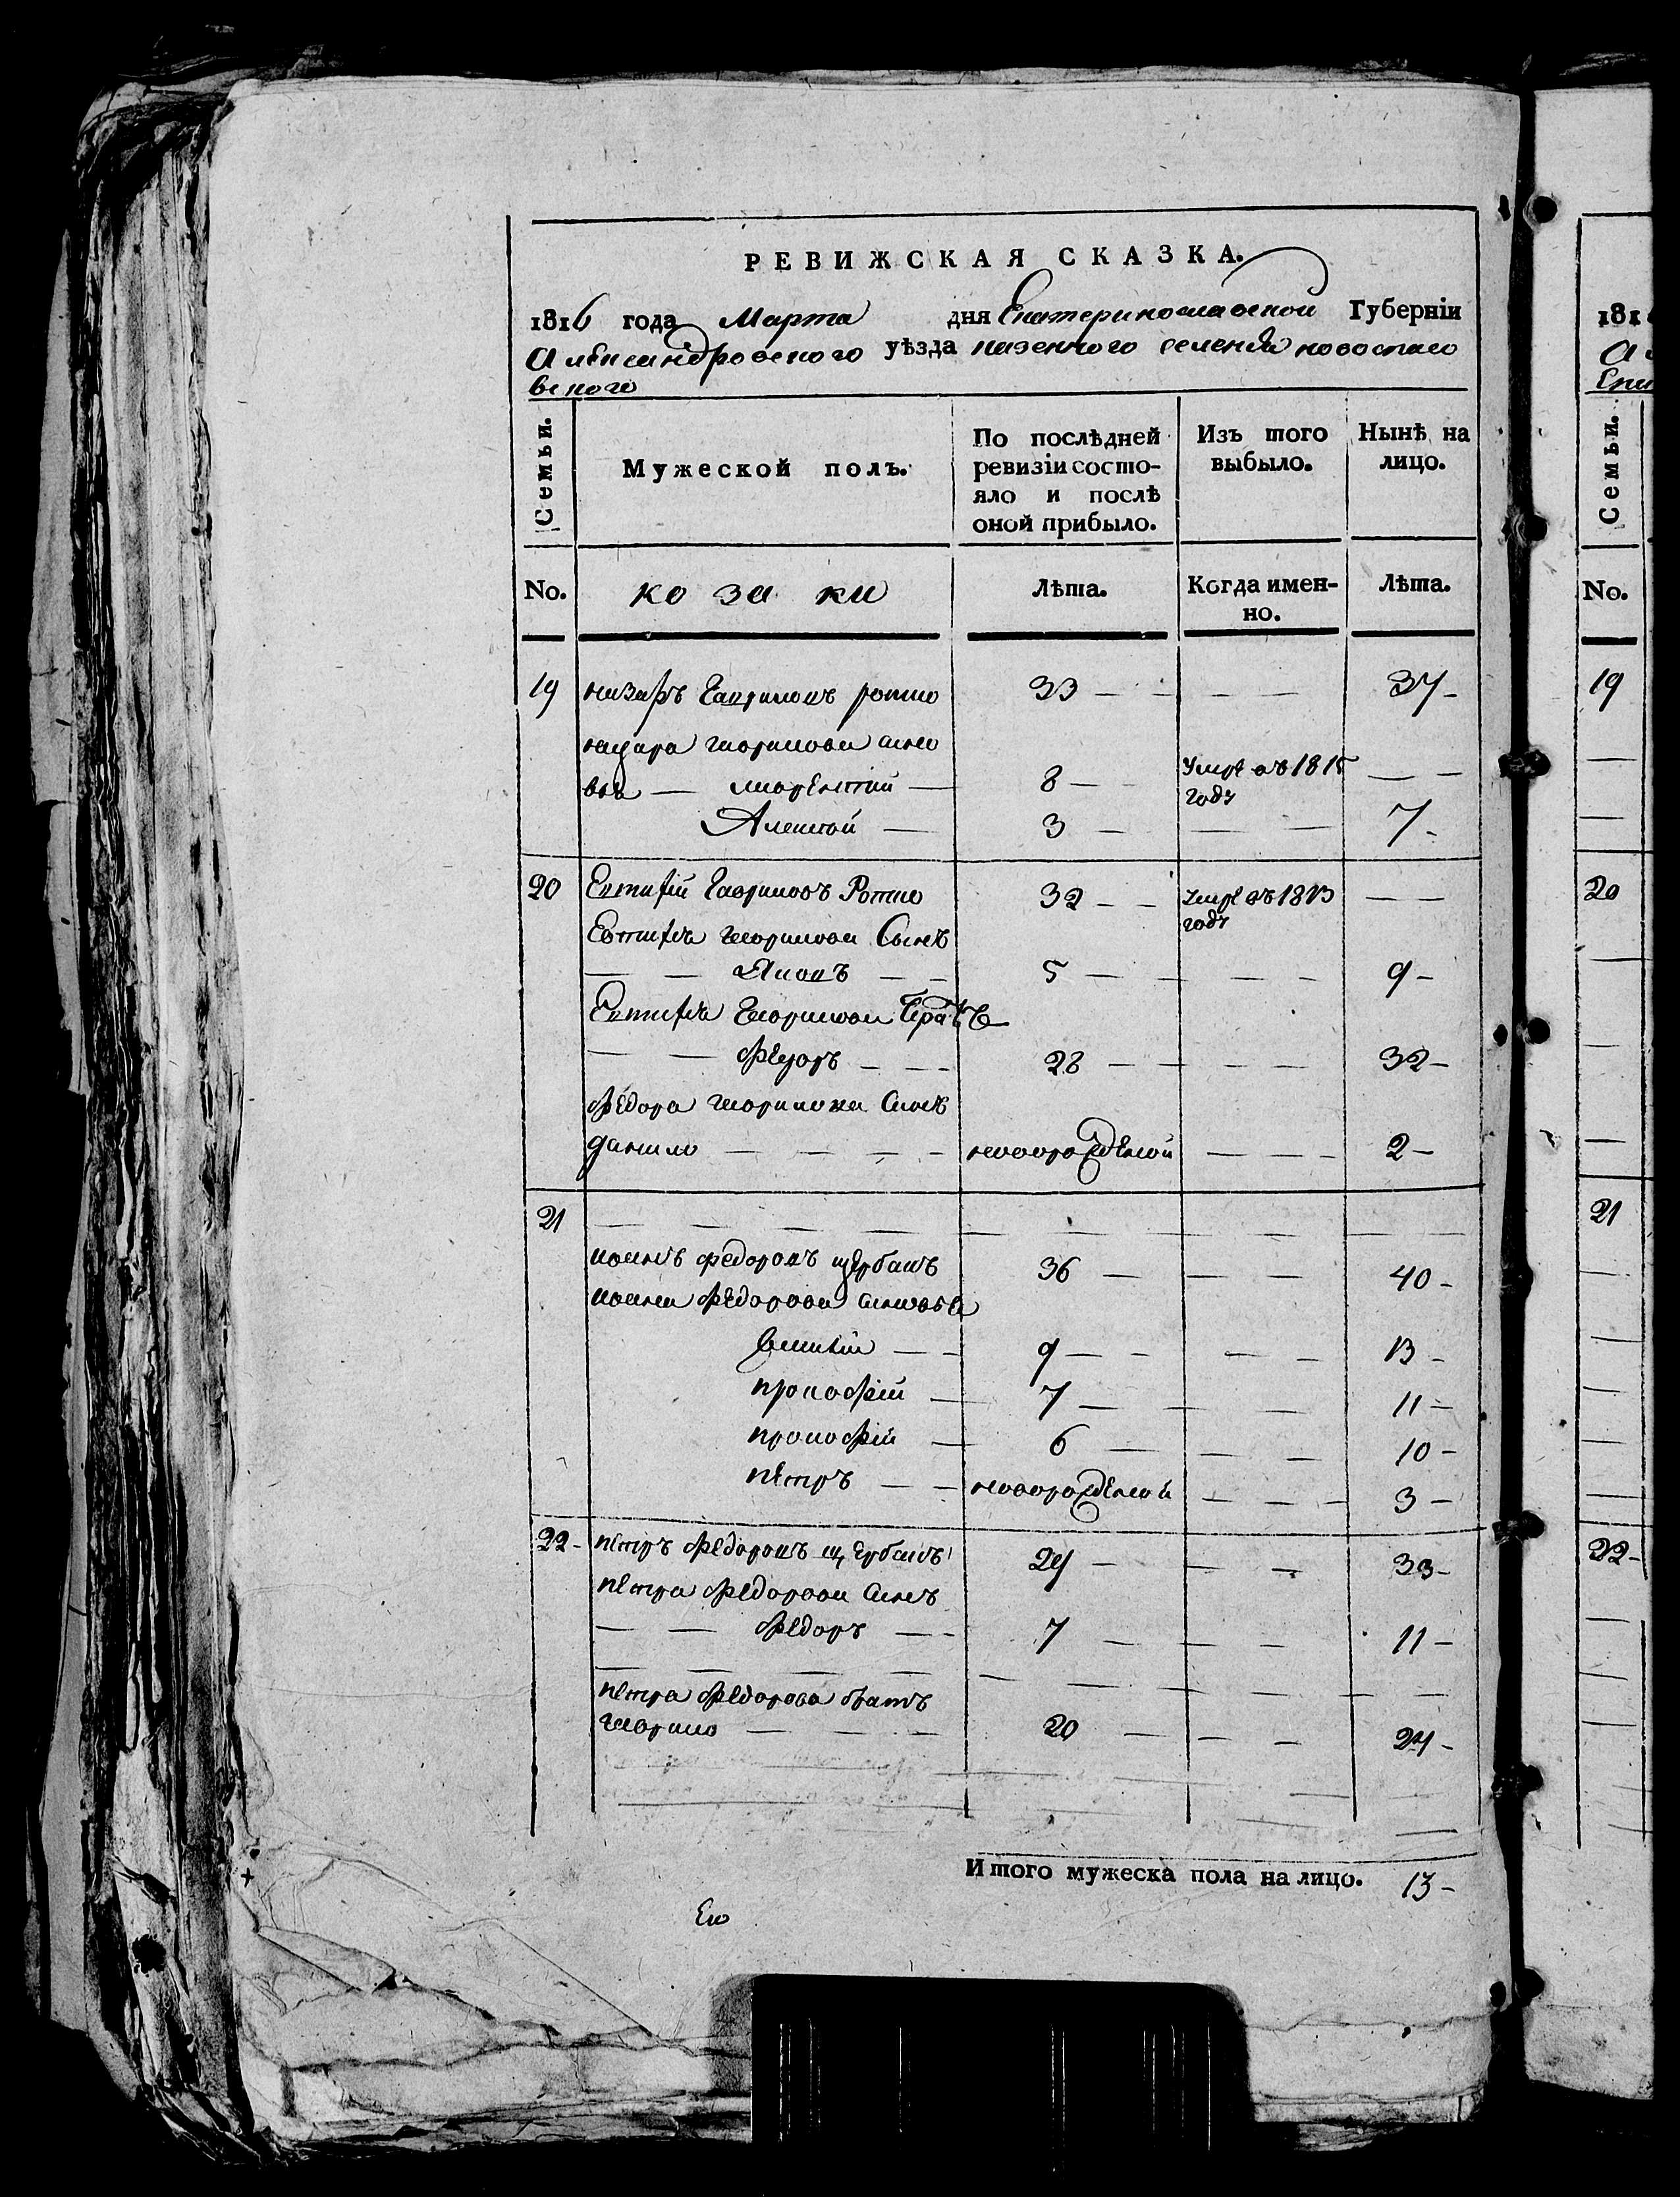 РЕВИЖСКАЯ СКАЗКА.
1816 года Марта дня Екатеринославской Губерніи
Александровского уѣзда казенного селенія новоспасо
вского
Семьи.
Мужеской полъ.
По послѣдней ревизіи состо-
яло и послѣ
оной прибыло.
Изъ того
выбыло.
Нынѣ на
лицо.
No.
козаки
Лѣта.
Когда имен-
но.
Лѣта.
19 назаръ Гавриловъ ротко 33 — — — — 37 —
назара гаврилова сыно
вья — лаврентий — 8 — — Умре въ 1815 году — —
Алексѣй — 3 — — — 7 —
20 Евтифій Гавриловъ Ротко 32 — — Умре въ 1813 году — —
Евтифѣя гаврилова Сынъ
— — Яковъ — — 5 — — — — 9 —
Евтифѣя Гаврилова Братъ
— — Федоръ — — — 28 — — — — 32 —
федора гаврилова Сынъ
данило — — — — новорожденой — — — 2 —
21 — — — —
иванъ федоровъ щербакъ 36 — — — 40 —
ивана федорова сыновья
— — 9 — — — — 13 —
прокофій — 7 — — — 11 —
прокофій — 6 — — — 10 —
петръ — — новорожденой — — — 3 —
22 — петръ федоровъ щербакъ 29 — — — 33 —
петра федорова сынъ
— — федоръ — — 7 — — — 11 —
петра федорова братъ
гаврило — — — 20 — — — 24 —
Итого мужеска пола на лицо. 13 —
1816
Семьи.
No.
19
20
21
22 —